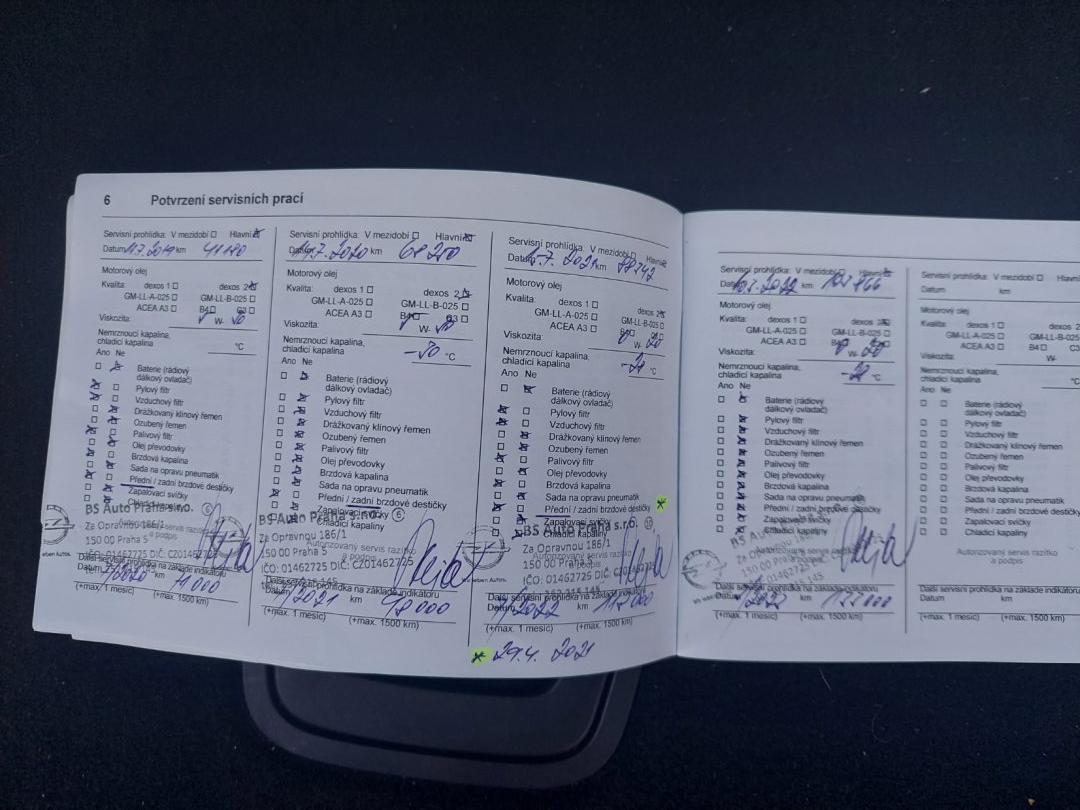 6 Potvrzení servisních prací
Servisní prohlídka: V mezidobí Hlavní
Datum 11.7.2019 km 41180
Motorový olej
Kvalita: dexos 1 dexos 2
GM-LL-A-025 GM-LL-B-025
ACEA A3 B4 C3
Viskozita: W-
Nemrznoucí kapalina,
chladicí kapalina °C
Ano Ne
Baterie (rádiový
dálkový ovladač)
Pylový filtr
Vzduchový filtr
Drážkovaný klínový řemen
Ozubený řemen
Palivový filtr
Olej převodovky
Brzdová kapalina
Sada na opravu pneumatik
Přední / zadní brzdové destičky
Zapalovací svíčky
BS Auto Praha s.r.o. 6
Za Opravnou 186/1
150 00 Praha 5
IČO: 01462725 DIČ: CZ01462725
Další servisní prohlídka na základě indikátoru
Datum km 71 000
(+max. 1 měsíc) (+max. 1500 km)
Servisní prohlídka: V mezidobí Hlavní
Datum 7.2020 km 68250
Motorový olej
Kvalita: dexos 1 dexos 2
GM-LL-A-025 GM-LL-B-025
ACEA A3 B4 C3
Viskozita: W-
Nemrznoucí kapalina,
chladicí kapalina °C
Ano Ne
Baterie (rádiový
dálkový ovladač)
Pylový filtr
Vzduchový filtr
Drážkovaný klínový řemen
Ozubený řemen
Palivový filtr
Olej převodovky
Brzdová kapalina
Sada na opravu pneumatik
Přední / zadní brzdové destičky
Zapalovací svíčky
Chladicí kapaliny
BS Auto Praha s.r.o. 6
Za Opravnou 186/1
150 00 Praha 5
Autorizovaný servis razítko
a podpis
IČO: 01462725 DIČ: CZ01462725
Další servisní prohlídka na základě indikátoru
Datum 2021 km 98 000
(+max. 1 měsíc) (+max. 1500 km)
Servisní prohlídka: V mezidobí Hlavní
Datum 7.2021 km 88342
Motorový olej
Kvalita: dexos 1 dexos 2
GM-LL-A-025 GM-LL-B-025
ACEA A3
Viskozita: W-
Nemrznoucí kapalina,
chladicí kapalina -21 °C
Ano Ne
Baterie (rádiový
dálkový ovladač)
Pylový filtr
Vzduchový filtr
Drážkovaný klínový řemen
Ozubený řemen
Palivový filtr
Olej převodovky
Brzdová kapalina
Sada na opravu pneumatik *
Přední / zadní brzdové destičky
Zapalovací svíčky
Chladicí kapaliny
BS Auto Praha s.r.o. 10
Za Opravnou 186/1
150 00 Praha 5
IČO: 01462725 DIČ: CZ01462725
Další servisní prohlídka na základě indikátoru
Datum 2022 km
(+max. 1 měsíc) (+max. 1500 km)
* 29.4. 2021
Servisní prohlídka: V mezidobí Hlavní
Datum 2022 km 103866
Motorový olej
Kvalita: dexos 1 dexos 2
GM-LL-A-025 GM-LL-B-025
ACEA A3
Viskozita: W-
Nemrznoucí kapalina,
chladicí kapalina °C
Ano Ne
Baterie (rádiový
dálkový ovladač)
Pylový filtr
Vzduchový filtr
Drážkovaný klínový řemen
Ozubený řemen
Palivový filtr
Olej převodovky
Brzdová kapalina
Sada na opravu pneumatik
Přední / zadní brzdové destičky
Zapalovací svíčky
Chladicí kapaliny
150 00 Praha 5
Další servisní prohlídka na základě indikátoru
Datum km
(+max. 1 měsíc) (+max. 1500 km)
Servisní prohlídka: V mezidobí
Datum km
Motorový olej
Kvalita: dexos 1 dexos 2
GM-LL-A-025 GM-LL-B-025
ACEA A3 B4 C3
Viskozita: W-
Nemrznoucí kapalina,
chladicí kapalina °C
Ano Ne
Baterie (rádiový
dálkový ovladač)
Pylový filtr
Vzduchový filtr
Drážkovaný klínový řemen
Ozubený řemen
Palivový filtr
Olej převodovky
Brzdová kapalina
Sada na opravu pneumatik
Přední / zadní brzdové destičky
Zapalovací svíčky
Chladicí kapaliny
Autorizovaný servis razítko
a podpis
Další servisní prohlídka na základě indikátoru
Datum km
(+max. 1 měsíc) (+max. 1500 km)